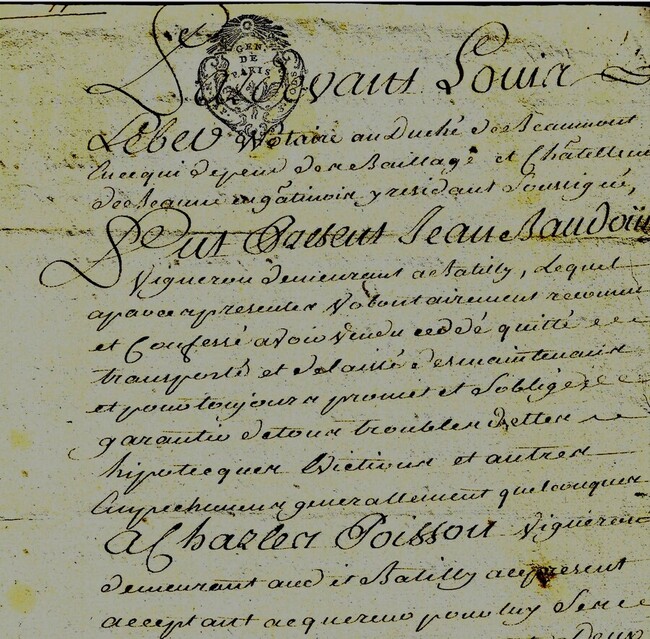 GEN.
DE
PARIS
Pardevant Louis
Lebev Notaire au Duché de Beaumont
En cequi depend des Baillage et Châtellenie
de Beaune en gâtinois y residant soussigné,
Fut Present Jean Baudoüin
Vigneron demeurant a Batilly, Lequel
apar ces presentes Volontairement reconnu
et Confessé avoir vendu ceddé quitté
transporté et delaissé des maintenant
et pour toujours promet et s'oblige
garantir de tous troubles dettes
hipotecques Evictions et autres
Empechemens generallement quelconques
A Charles Poisson Vigneron
demeurant aud it Batilly ace present
acceptant acquereur pour luy ses